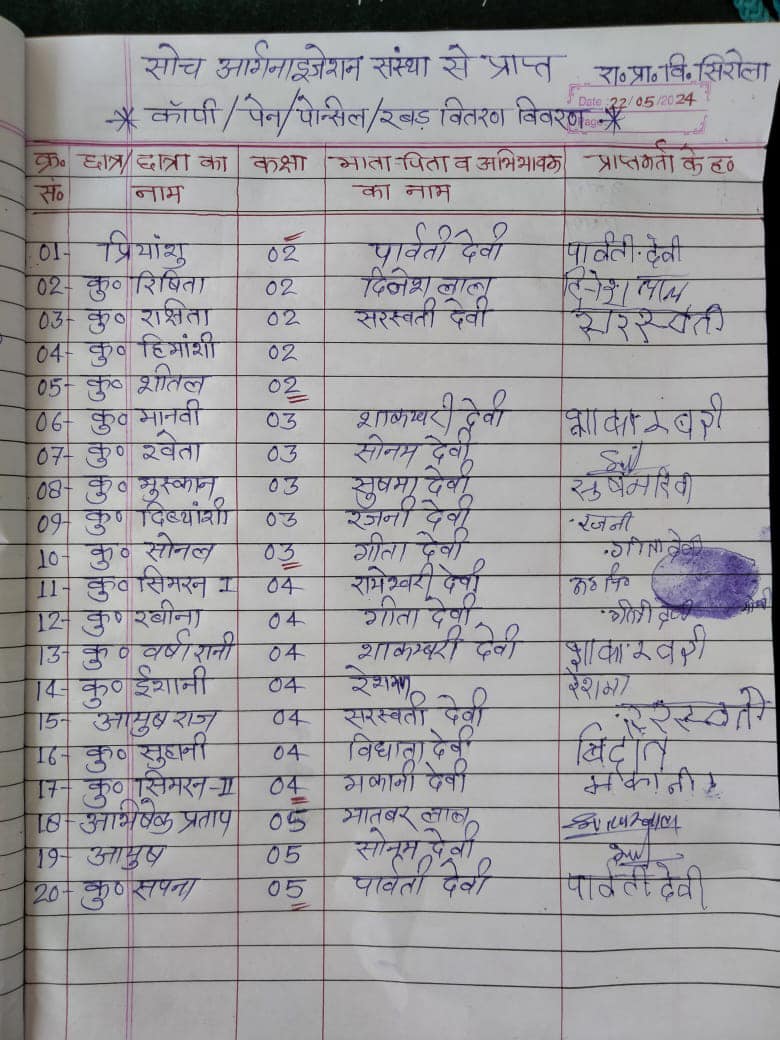 सोच आर्गनाइजेशन संस्था से प्राप्त रा०प्रा०वि०सिरोला
Date 22/05/2024
* कॉपी/पेन/पेन्सिल/रबड़ वितरण विवरण *
क्र० छात्र/छात्रा का कक्षा माता-पिता व अभिभावक प्राप्तकर्ता के ह०
सं० नाम का नाम
01- प्रियांशु 02 पार्वती देवी पार्वती देवी
02- कु० रिषिता 02 दिनेश लाल दिनेश लाल
03- कु० राक्षिता 02 सरस्वती देवी सरस्वती
04- कु० हिमांशी 02
05- कु० शीतल 02
06- कु० मानवी 03 शाकम्बरी देवी शाकम्बरी
07- कु० श्वेता 03 सोनम देवी
08- कु० मुस्कान 03 सुषमा देवी
09- कु० दिव्यांशी 03 रजनी देवी रजनी
10- कु० सोनल 03 गीता देवी गीता देवी
11- कु० सिमरन I 04 रामेश्वरी देवी
12- कु० रबीना 04 गीता देवी गीता देवी
13- कु० वर्षा रानी 04 शाकम्बरी देवी शाकम्बरी
14- कु० ईशानी 04 रेशमा रेशमा
15- आयुष राज 04 सरस्वती देवी सरस्वती
16- कु० सुहानी 04 विधाता देवी
17- कु० सिमरन-II 04 मकानी देवी मकानी
18- अभिषेक प्रताप 05 मातबर लाल
19- आयुष 05 सोनम देवी
20- कु० सपना 05 पार्वती देवी पार्वती देवी